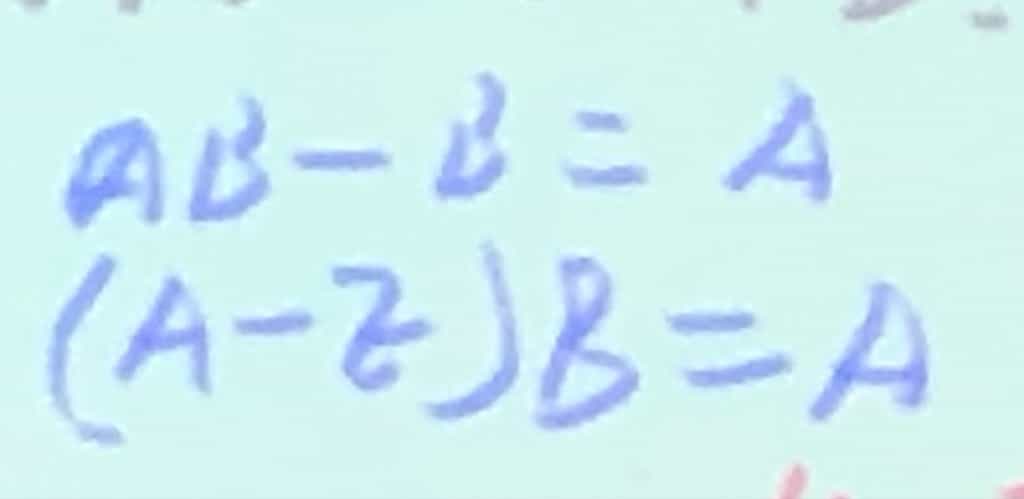 AB - B = A
(A - E)B = A